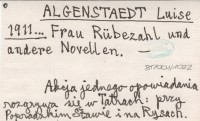 ALGENSTAEDT Luise
1911... Frau Rübezahl und
andere Novellen. —
Akcja jednego opowiadania
rozgrywa się w Tatrach: przy
Popradzkim Stawie i na Rysach.